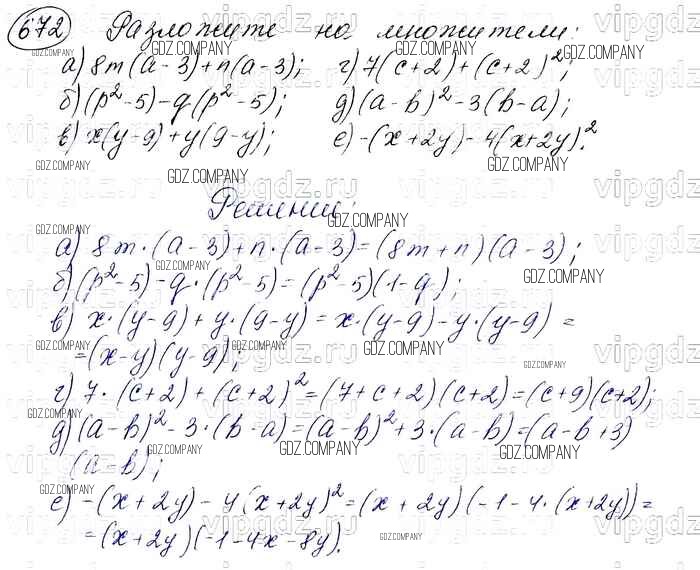 672 Разложите на множители:
а) 8m(a-3)+n(a-3); г) 7(c+2)+(c+2)²;
б) (p²-5)-q(p²-5); д) (a-b)²-3(b-a);
в) x(y-9)+y(9-y); е) -(x+2y)-4(x+2y)².
Решение:
а) 8m·(a-3)+n·(a-3)=(8m+n)(a-3);
б) (p²-5)-q·(p²-5)=(p²-5)(1-q);
в) x·(y-9)+y·(9-y)=x·(y-9)-y·(y-9)=
=(x-y)(y-9);
г) 7·(c+2)+(c+2)²=(7+c+2)(c+2)=(c+9)(c+2);
д) (a-b)²-3·(b-a)=(a-b)²+3·(a-b)=(a-b+3)
(a-b);
е) -(x+2y)-4(x+2y)²=(x+2y)(-1-4·(x+2y))=
=(x+2y)(-1-4x-8y).
GDZ.COMPANY
vipgdz.ru